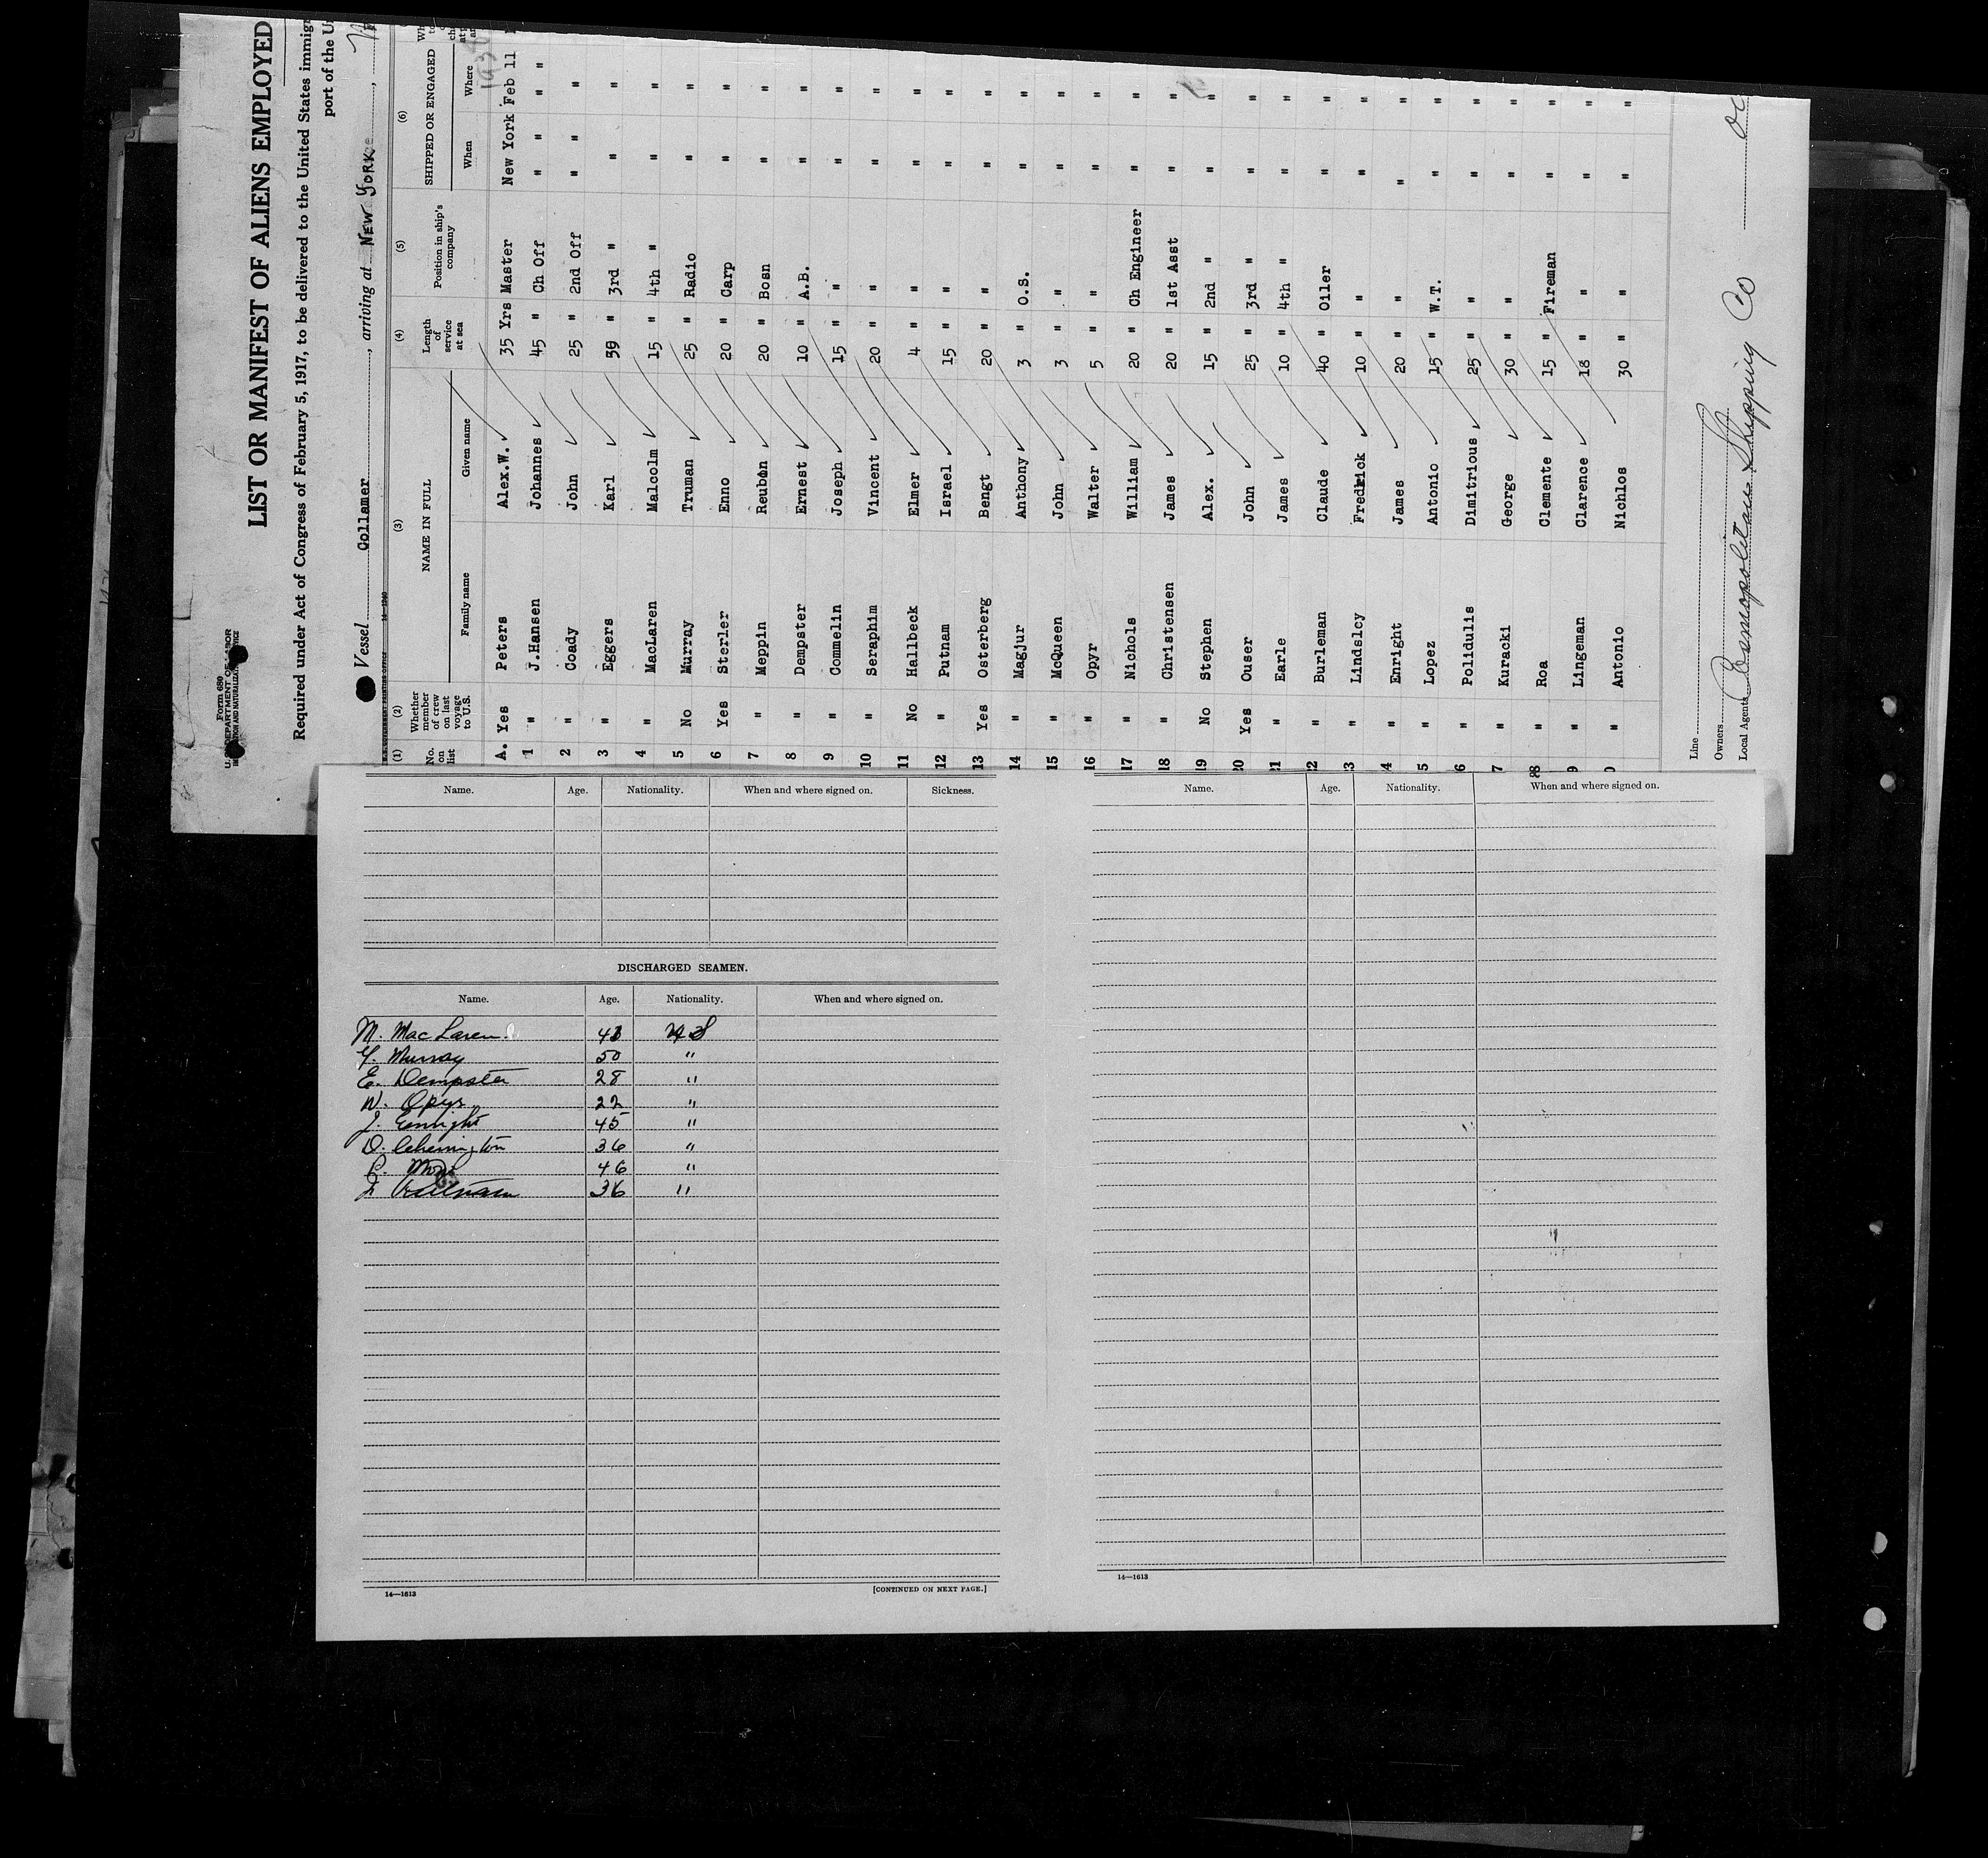 Form 680
U. S. DEPARTMENT OF LABOR
IMMIGRATION AND NATURALIZATION SERVICE
LIST OR MANIFEST OF ALIENS EMPLOYED
Required under Act of Congress of February 5, 1917, to be delivered to the United States immigr
port of the U
Vessel Collamer, arriving at NEW YORK
U.S. GOVERNMENT PRINTING OFFICE 14—1240
(1) (2) (3) (4) (5) (6)
No. on list Whether member of crew on last voyage to U.S. NAME IN FULL Length of service at sea Position in ship's company SHIPPED OR ENGAGED
Family name Given name When Where
A. Yes Peters Alex.W. 35 Yrs Master New York Feb 11
1 " J.Hansen Johannes 45 " Ch Off " " " "
2 " Coady John 25 " 2nd Off " " "
3 " Eggers Karl 39 " 3rd " " "
4 " MacLaren Malcolm 15 " 4th " " "
5 No Murray Truman 25 " Radio " "
6 Yes Sterler Enno 20 " Carp " "
7 " Meppin Reuben 20 " Bosn " "
8 " Dempster Ernest 10 " A.B. " "
9 " Commelin Joseph 15 " " " "
10 " Seraphim Vincent 20 " " " "
11 No Hallbeck Elmer 4 " " " "
12 " Putnam Israel 15 " " " "
13 Yes Osterberg Bengt 20 " " " "
14 " Magjur Anthony 3 " O.S. " "
15 " McQueen John 3 " " " "
16 " Opyr Walter 5 " " " "
17 " Nichols William 20 " Ch Engineer " "
18 " Christensen James 20 " 1st Asst " "
19 No Stephen Alex. 15 " 2nd " " "
20 Yes Ouser John 25 " 3rd " " "
21 " Earle James 10 " 4th " " "
22 " Burleman Claude 40 " Oiler " "
23 " Lindsley Fredrick 10 " " " "
4 " Enright James 20 " " " "
5 " Lopez Antonio 15 " W.T. " "
6 " Polidulis Dimitrious 25 " " " "
7 " Kuracki George 30 " " " "
28 " Roa Clemente 15 " Fireman " "
9 " Lingeman Clarence 18 " " " "
0 " Antonio Nichlos 30 " " " "
Line
Owners
Local Agents Cosmopolitan Shipping Co
Name. Age. Nationality. When and where signed on. Sickness.
DISCHARGED SEAMEN.
Name. Age. Nationality. When and where signed on.
M. Mac Laren 43 U S
Y. Murray 50 "
E. Dempster 28 "
W. Opyr 22 "
J. Enright 45 "
D. 36 "
46 "
I. Putnam 36 "
14—1613 [CONTINUED ON NEXT PAGE.]
Name. Age. Nationality. When and where signed on.
14—1613